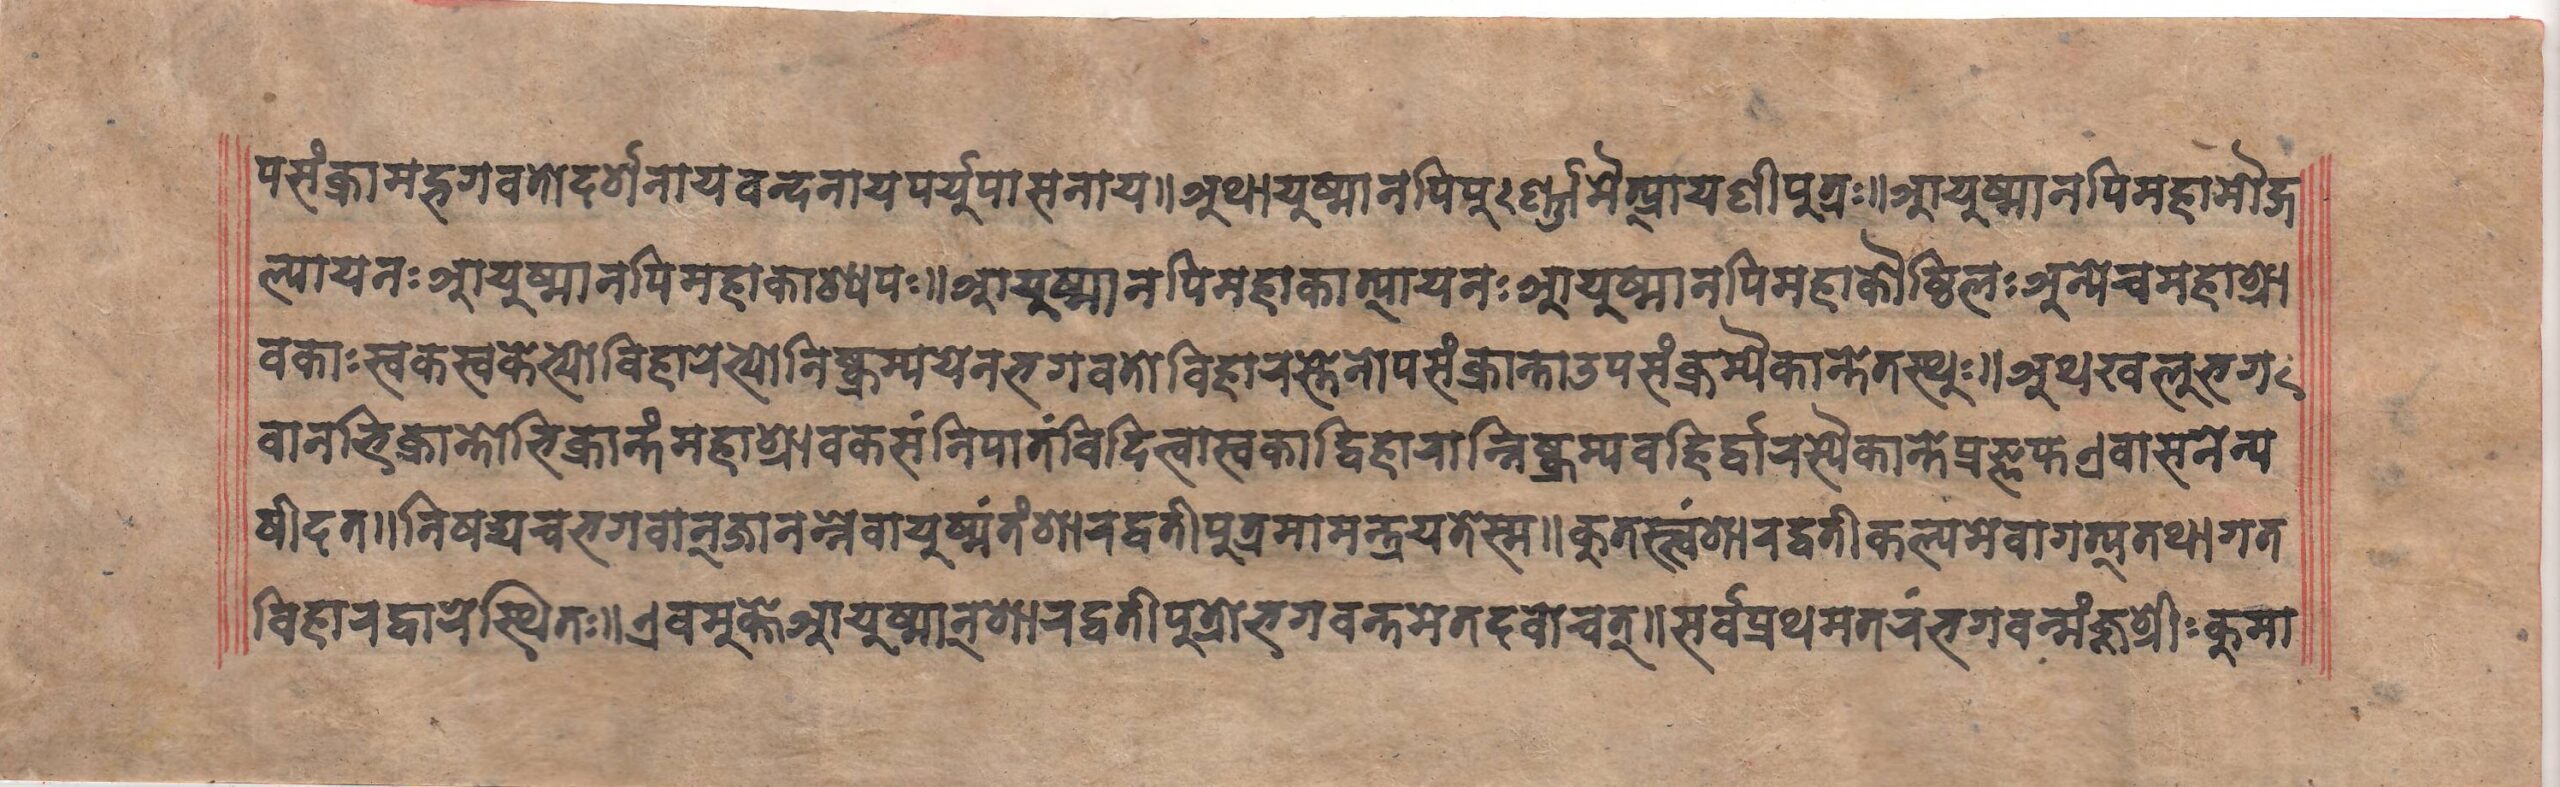 पसंक्रामद्भगवतोदर्शनायवन्दनायपर्युपासनाय॥अथायुष्मानपिपुर्ण्णमैत्रायणीपुत्रः॥आयुष्मानपिमहामौद्ग
ल्यायनःआयुष्मानपिमहाकाश्यपः॥आयुष्मानपिमहाकात्यायनःआयुष्मानपिमहाकौष्ठिलःअन्येचमहाश्रा
वकाःस्वकस्वकेभ्योविहारेभ्योनिष्क्रम्ययेनभगवतोविहारस्तेनोपसंक्रान्ताउपसंक्रम्यैकान्तेतस्थुः॥अथखलुभग
वानभिक्रान्तोभिक्रान्तंमहाश्रावकसंनिपातंविदित्वास्वकाद्विहारान्निष्क्रम्यवहिर्द्वारस्यैकान्तेप्रज्ञप्तएवासनेन्य
षीदत॥निषद्यचभगवान्जानन्नेवायुष्मंतंशारद्वतीपुत्रमामन्त्रयतेस्म॥कुतस्त्वंशारद्वतीकल्यमेवागत्य्तथागत
विहारद्वारेस्थितः॥एवमुक्तेआयुष्मान्शारद्वतीपुत्रोभगवन्तमेतदवोचत्॥सर्वप्रथमतरंभगवन्मंजूश्रीःकुमा